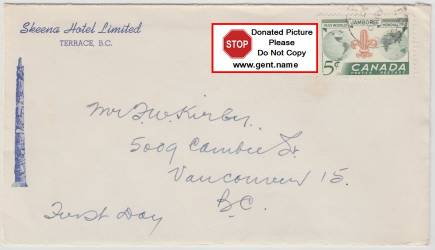 Skeena Hotel Limited
TERRACE, B.C.
STOP
Donated Picture
Please
Do Not Copy
www.gent.name
JAMBOREE
5¢
CANADA
POSTES POSTAGE
Mr F.W. Kirby.
5009 Cambie St.
Vancouver 15.
B.C.
First Day